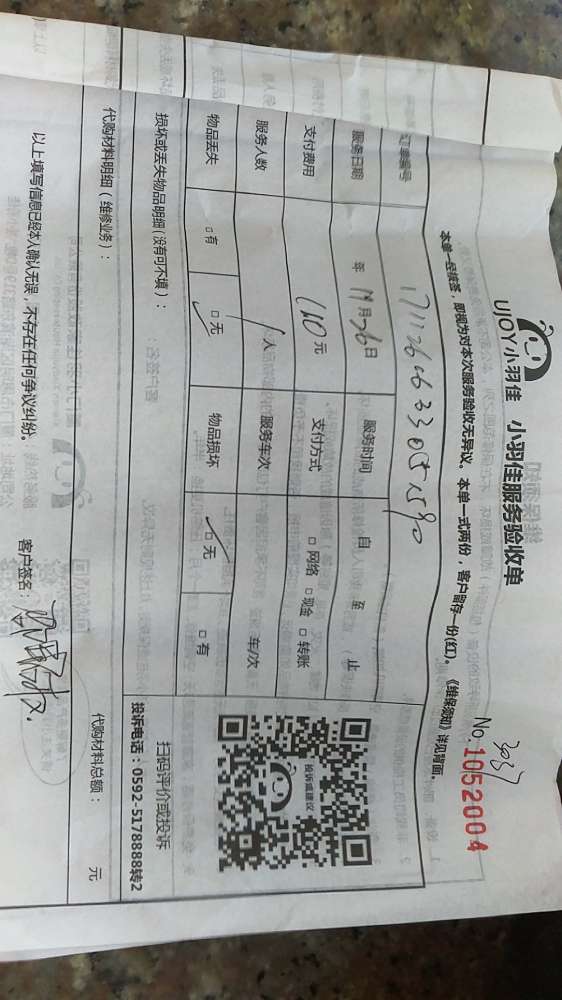 3037
No.1052004
UJOY小羽佳 小羽佳服务验收单
本单一经核签，即视为对本次服务验收无异议。本单一式两份，客户留存一份(红)。《维保须知》详见背面。
订单编号 171126063305590
服务日期 年 11月26日 服务时间 自 至 止
支付费用 140元 支付方式 □网络 □现金 □转账
服务人数 1人 服务车次 车/次
物品丢失 □有 □无 物品损坏 □无 □有
投诉或建议
扫码评价或投诉
投诉电话：0592-5178888转2
损坏或丢失物品明细(没有可不填)：
代购材料明细（维修业务）：
代购材料总额： 元
以上填写信息已经本人确认无误，不存在任何争议纠纷。
客户签名